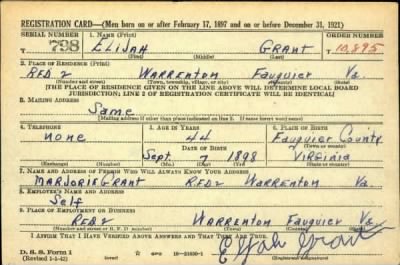 REGISTRATION CARD—(Men born on or after February 17, 1897 and on or before December 31, 1921)
SERIAL NUMBER 1. NAME (Print) ORDER NUMBER
798 ELIJAH GRANT 10,895
(First) (Middle) (Last)
2. PLACE OF RESIDENCE (Print)
RFD 2 WARRENTON Fauquier Va.
(Number and street) (Town, township, village, or city) (County) (State)
[THE PLACE OF RESIDENCE GIVEN ON THE LINE ABOVE WILL DETERMINE LOCAL BOARD
JURISDICTION; LINE 2 OF REGISTRATION CERTIFICATE WILL BE IDENTICAL]
3. MAILING ADDRESS
Same
[Mailing address if other than place indicated on line 2. If same insert word same]
4. TELEPHONE 5. AGE IN YEARS 6. PLACE OF BIRTH
none 44 Fauquier County
DATE OF BIRTH (Town or county)
Sept. 7 1898 Virginia
(Exchange) (Number) (Mo.) (Day) (Yr.) (State or country)
7. NAME AND ADDRESS OF PERSON WHO WILL ALWAYS KNOW YOUR ADDRESS
MARJORIE GRANT RFD 2 WARRENTON Va.
8. EMPLOYER'S NAME AND ADDRESS
Self
9. PLACE OF EMPLOYMENT OR BUSINESS
RFD 2 WARRENTON Fauquier Va
(Number and street or R. F. D. number) (Town) (County) (State)
I AFFIRM THAT I HAVE VERIFIED ABOVE ANSWERS AND THAT THEY ARE TRUE.
D. S. S. Form 1
(Revised 1-5-42) (over) GPO 16—21630-1